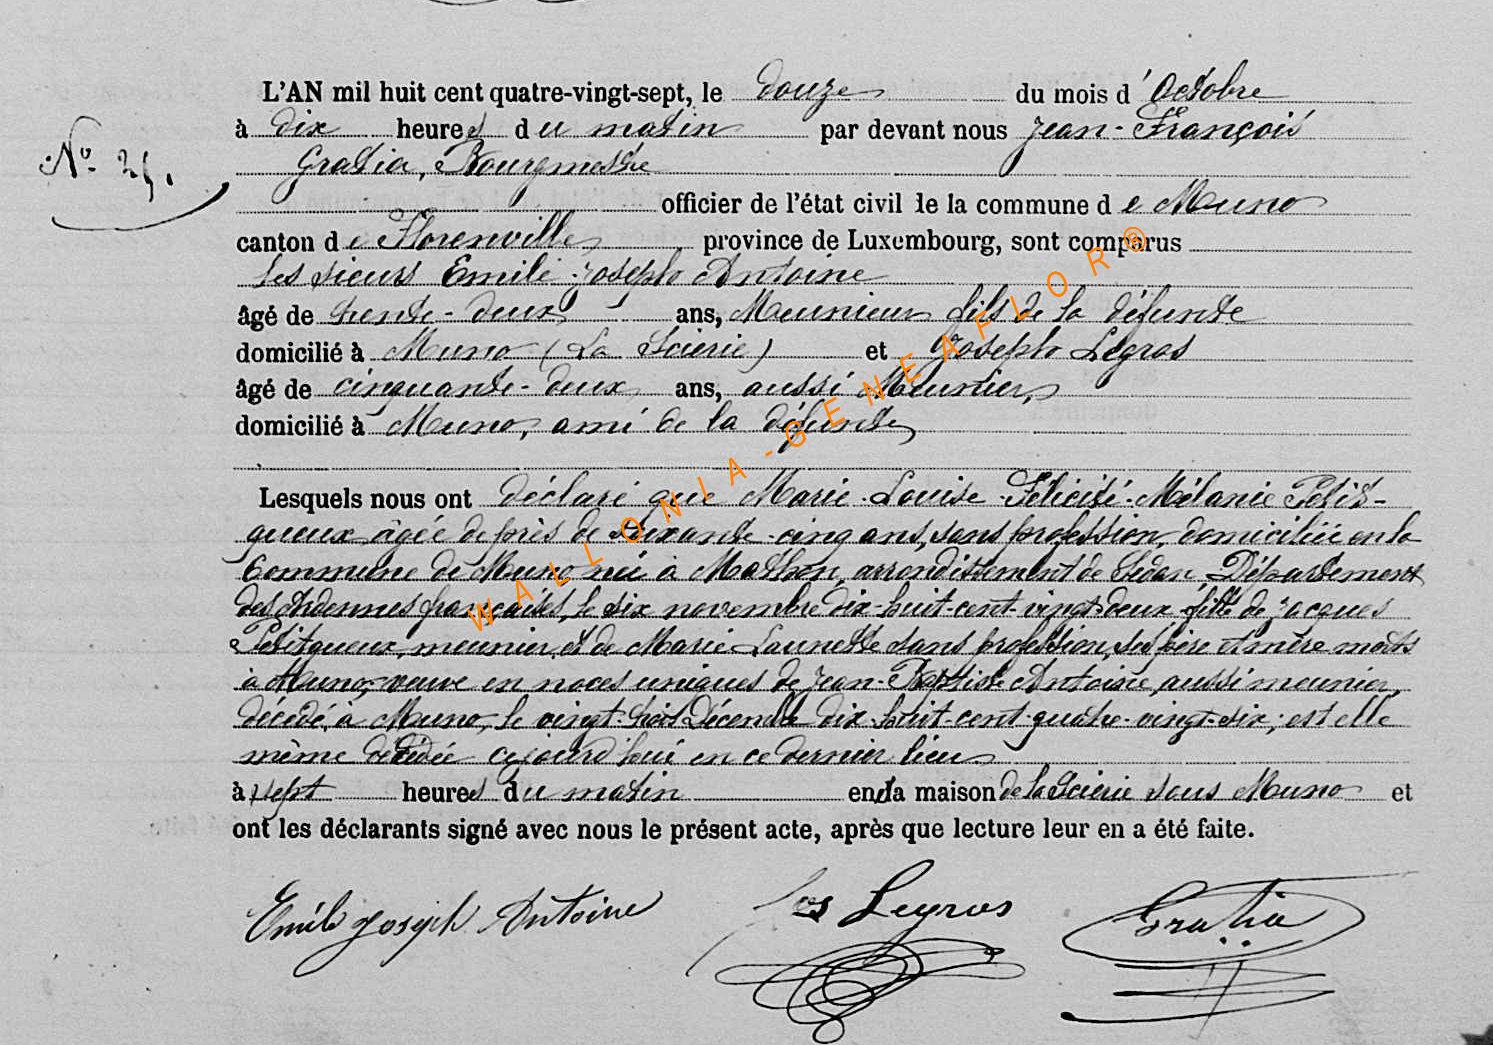 L'AN mil huit cent quatre-vingt-sept, le douze du mois d'Octobre
à dix heures du matin par devant nous Jean-François
No. 25.
Gratia, Bourgmestre
officier de l'état civil de la commune de Muno
canton de Florenville, province de Luxembourg, sont comparus
les sieurs Emile Joseph Antoine
âgé de trente-deux ans, Meunier fils de la défunte
domicilié à Muno (La Scierie) et Joseph Legros
âgé de cinquante-deux ans, aussi Meunier,
domicilié à Muno, ami de la défunte
Lesquels nous ont déclaré que Marie-Louise-Félicité-Mélanie Petit-
queux, âgée de près de soixante-cinq ans, sans profession, domiciliée en la
Commune de Muno née à Mathon, arrondissement de Sedan, Département
des Ardennes françaises, le six novembre dix-huit-cent-vingt-deux, fille de Jacques
Petitqueux, meunier, et de Marie Launette sans profession, ses père et mère morts
à Muno, veuve en noces uniques de Jean-Baptiste Antoine, aussi meunier,
décédé à Muno, le vingt-trois Décembre dix-huit-cent-quatre-vingt-six; est elle
même décédée aujourd'hui en ce dernier lieu
à sept heures du matin en la maison de la Scierie sous Muno et
ont les déclarants signé avec nous le présent acte, après que lecture leur en a été faite.
Emile Joseph Antoine Jos Legros Gratia
WALLONIA-GENEAFLOR®